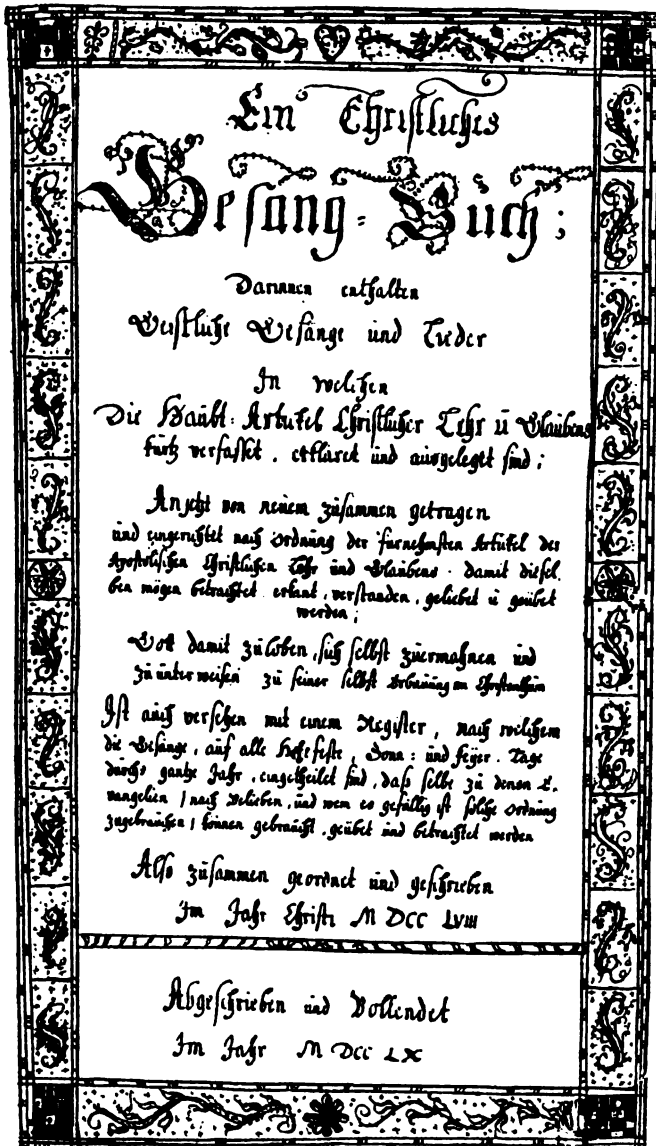 Ein Christliches
Gesang=Buch;
Darinnen enthalten
Geistliche Gesänge und Lieder
In welchen
Die Haubt=Artickel Christlicher Lehr u Glaubens
kurtz verfasset, erkläret und ausgeleget sind;
Anjetzt von neuem zusammen getragen
und eingerichtet nach Ordnung der fürnehmsten Artickel der
Apostolischen Christlichen Lehr und Glaubens. damit diesel,
ben mögen betrachtet erkant, verstanden, geliebet u geübet
werden;
Gott damit zu loben, sich selbst zuermahnen und
zu unterweisen zu seiner selbst Erbauung im Christenthum
Ist auch versehen mit einem Register, nach welchem
die Gesänge, auf alle Hohe feste, Sonn: und feyer. Tage
durchs gantze Jahr, eingetheilet sind, daß selbe zu denen E,
vangelien / nach Belieben, und wem es gefällig ist solche Ordnung
zugebrauchen / können gebraucht, geübet und betrachtet werden
Also zusammen geordnet und geschrieben
Im Jahr Christi M DCC LVIII
Abgeschrieben und Vollendet
Im Jahr M DCC LX